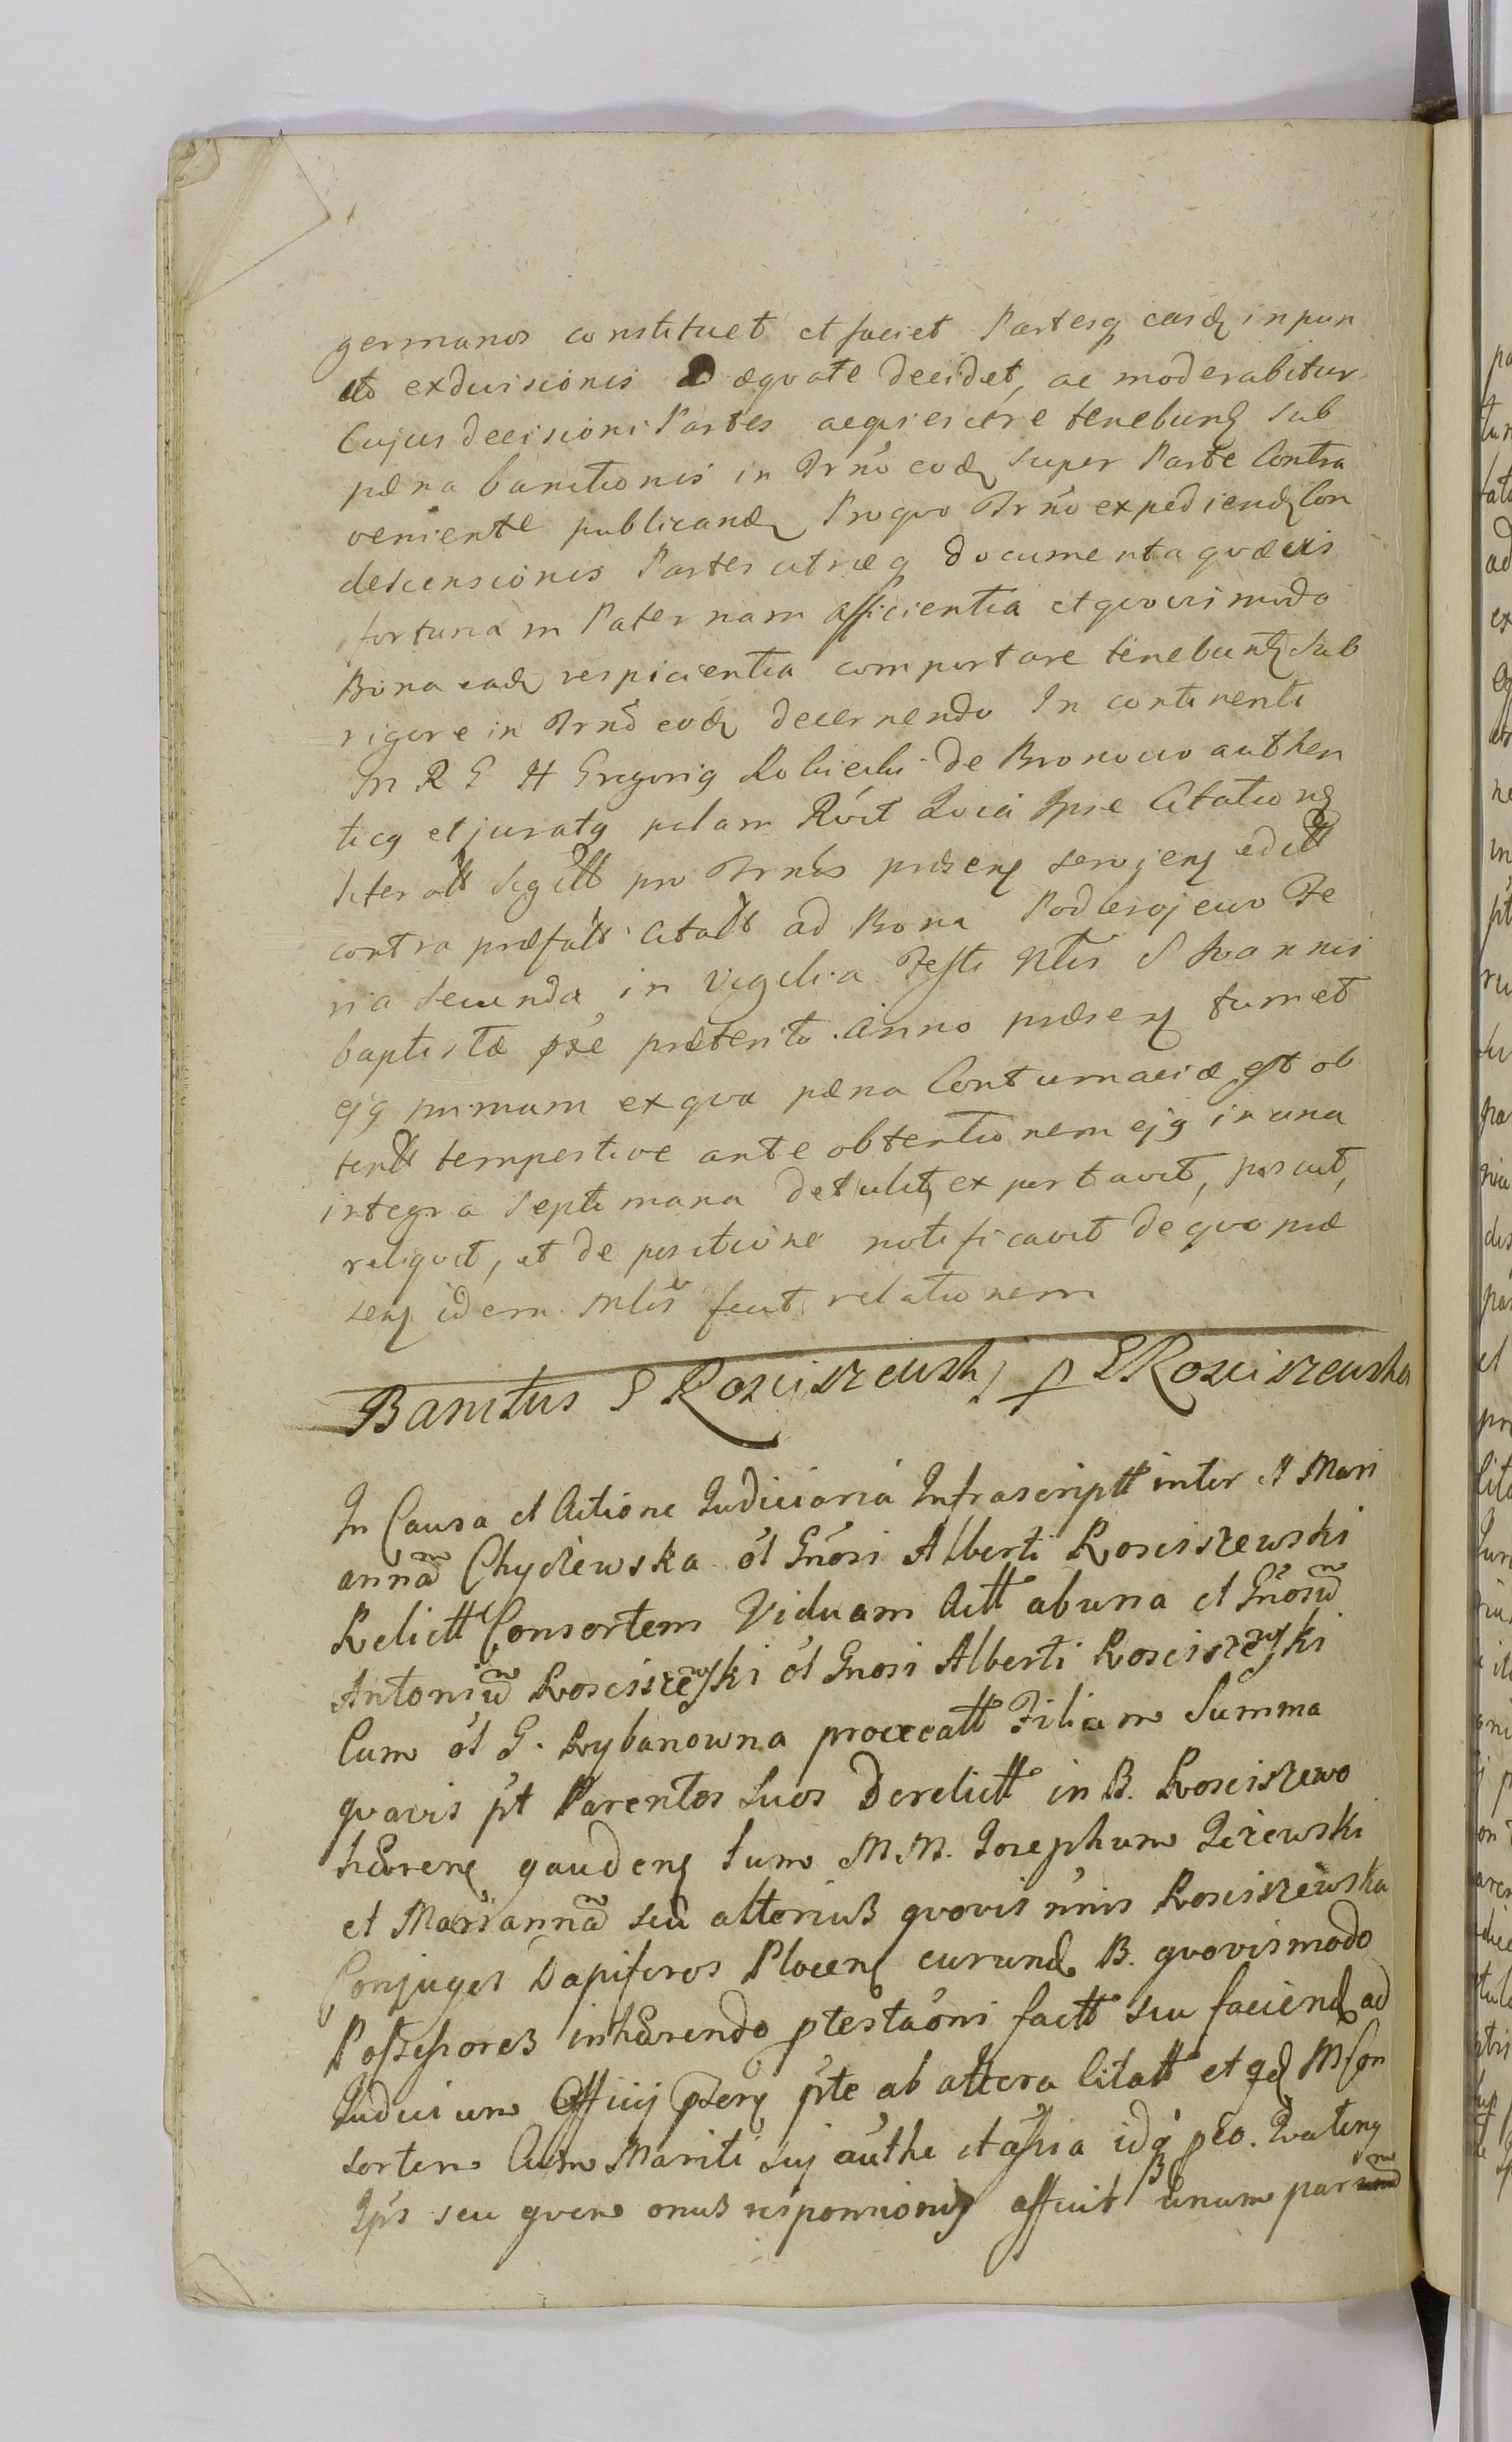 germanos constituet et faciet Partesq easd in pun
cto exdivisionis adæqvate decidet, ac moderabitur
Cujus decisioni Partes acqviescere tenebunt Sub
pæna banitionis in Trno eod super Parte Contra
veniente publicand Pro qvo Trno expediend Con
descensionis Partes utræq documenta qvævis
fortunam Paternam afficientia et qvovismodo
Bona ead respicientia comportare tenebunt Sub
rigore in Trno eod decernendo In continenti
M R G H Gregorig de Bronowo authen
ticg et juratg palam Rvit Qvia Ipse Citationg
literatt Sigill pro Trnis præsens servjens editt
contra præfatt Citatt ad Bona Podlesvjewo Fe
ria Secunda in Vigilia Festi Ntis S Ioannis
baptistæ pxe præterito Anno præsen tum et
ejg primam ex qva pæna Contumaciæ est ob
tentt tempestive ante obtentionem ejg in una
integra Septimana detulit, exportavit, posuit,
reliqvit, et de positione notificavit de qvo præ
sens idem Mlis fecit relationem
Banitus G Rosciszewski p G Rosciszewska
In Causa et Actione Iudiciaria Infrascriptt inter G Mari
annam Chyczewska ol Gnosi Alberti Rosciszewski
Relictt Consortem Viduam Actt ab una et Gnosum
Antonium Rosciszewski ol Gnosi Alberti Rosciszewski
Cum ol G. Rybanowna procreatt Filium Summa
qvavis pt Parentes Suos Derelictt in B. Rosciszewo
hæren gauden tum M.M. Iosephum Jeżewski
et Mariannam seu alterius qvovis nnis Rosciszewska
Conjuges Dapiferos Plocen eorund B. qvovismodo
Possessores inhærendo ptestaoni factt seu faciend ad
Iudicium Officij pte ab altera Citatt et qd MCon
sortem Cum Mariti suj authe et assia idq peo. Qvateng
Ips seu qvem onus responsionis afficit Bnum parum